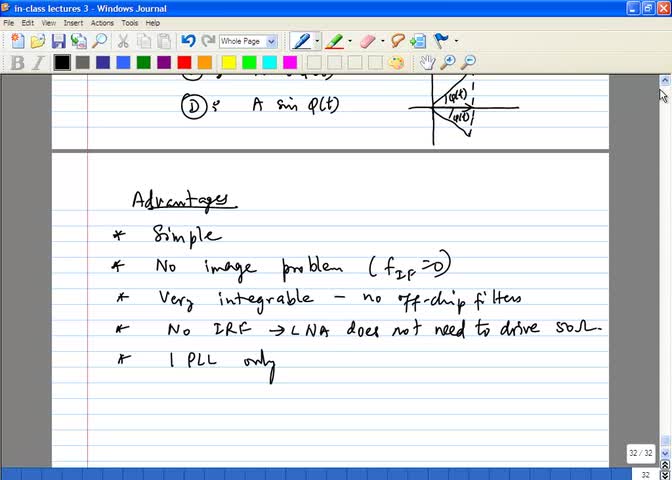 in-class lectures 3 - Windows Journal
File Edit View Insert Actions Tools Help
Whole Page
B I
D : A sin φ(t)
φ(t)
φ(t)
Advantages
* Simple
* No image problem (f_IF = 0)
* Very integrable - no off-chip filters
* No IRF → LNA does not need to drive 50Ω
* 1 PLL only
32 / 32
32